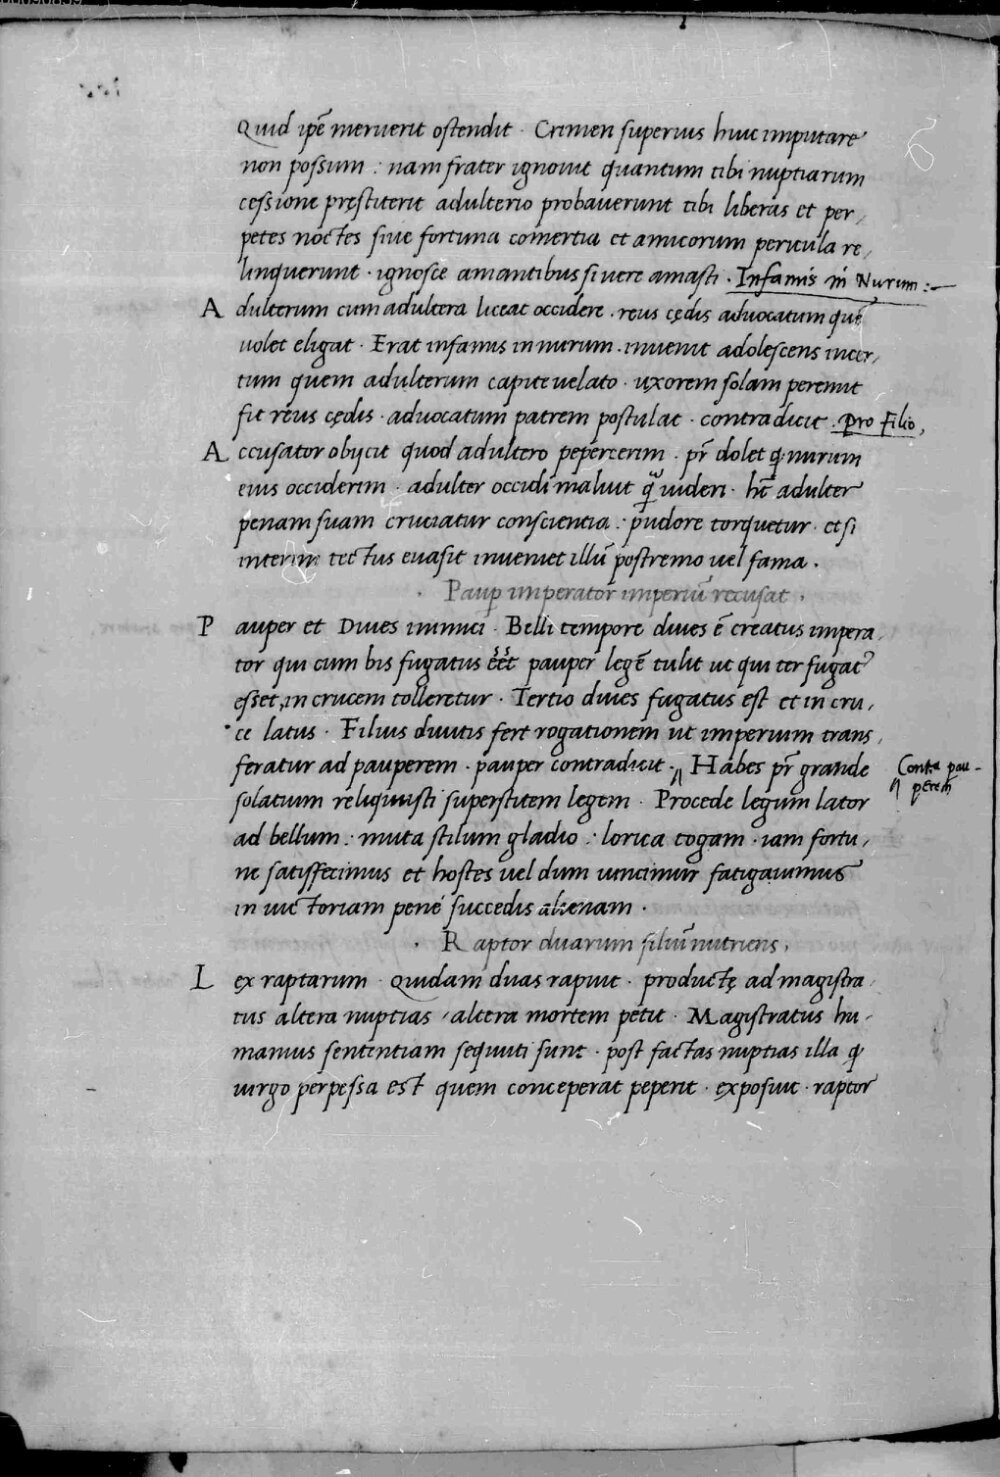 Quid ip̄e meruerit ostendit · Crimen superius huic imputare
non possum : nam frater ignovit quantum tibi nuptiarum
cessione pręstiterit adulterio probaverunt tibi liberas et per,
petes noctes sive fortuna comertia et amicorum pericula re,
linquerunt · ignosce amantibus si vere amasti . Infamis in Nurum :~
Adulterum cum adultera liceat occidere . reus cędis advocatum quē
volet eligat · Erat infamis in nurum . invenit adolescens incer,
tum quem adulterum capite velato · uxorem solam peremit
fit reus cędis · advocatum patrem postulat · contradicit . Pro Filio,
Accusator obijcit quod adultero pepercerim . pr̄ dolet q̨ nurum
eius occiderim · adulter occidi maluit quā videri · ht̄ adulter
penam suam cruciatur conscientia : pudore torquetur · et si
interim tectus evasit inveniet illū postremo vel fama .
· Paup̱ imperator imperiū recusat .
Pauper et Dives inimici · Belli tempore dives ē creatus impera,
tor qui cum bis fugatus eēt pauper legē tulit ut qui ter fugat᾽
esset, in crucem tolleretur · Tertio dives fugatus est et in cru,
ce latus · Filius divitis fert rogationem ut imperium trans,
feratur ad pauperem · pauper contradicit · Habes pr̄ grande
Contra pau-
perem
solatium reliquisti superstitem legem · Procede legum lator
ad bellum : muta stilum gladio : lorica togam · iam fortu,
ne satisfecimus et hostes vel dum vincimur fatigavimus
in victoriam pene succedis alienam .
· Raptor duarum filiū nutriens .
Lex raptarum · Quidam duas rapuit · productę ad magistra
tus altera nuptias , altera mortem petit · Magistratus hu-
manius sententiam sequuti sunt · post factas nuptias illa q̨
virgo perpessa est quem conceperat peperit · exposuit · raptor